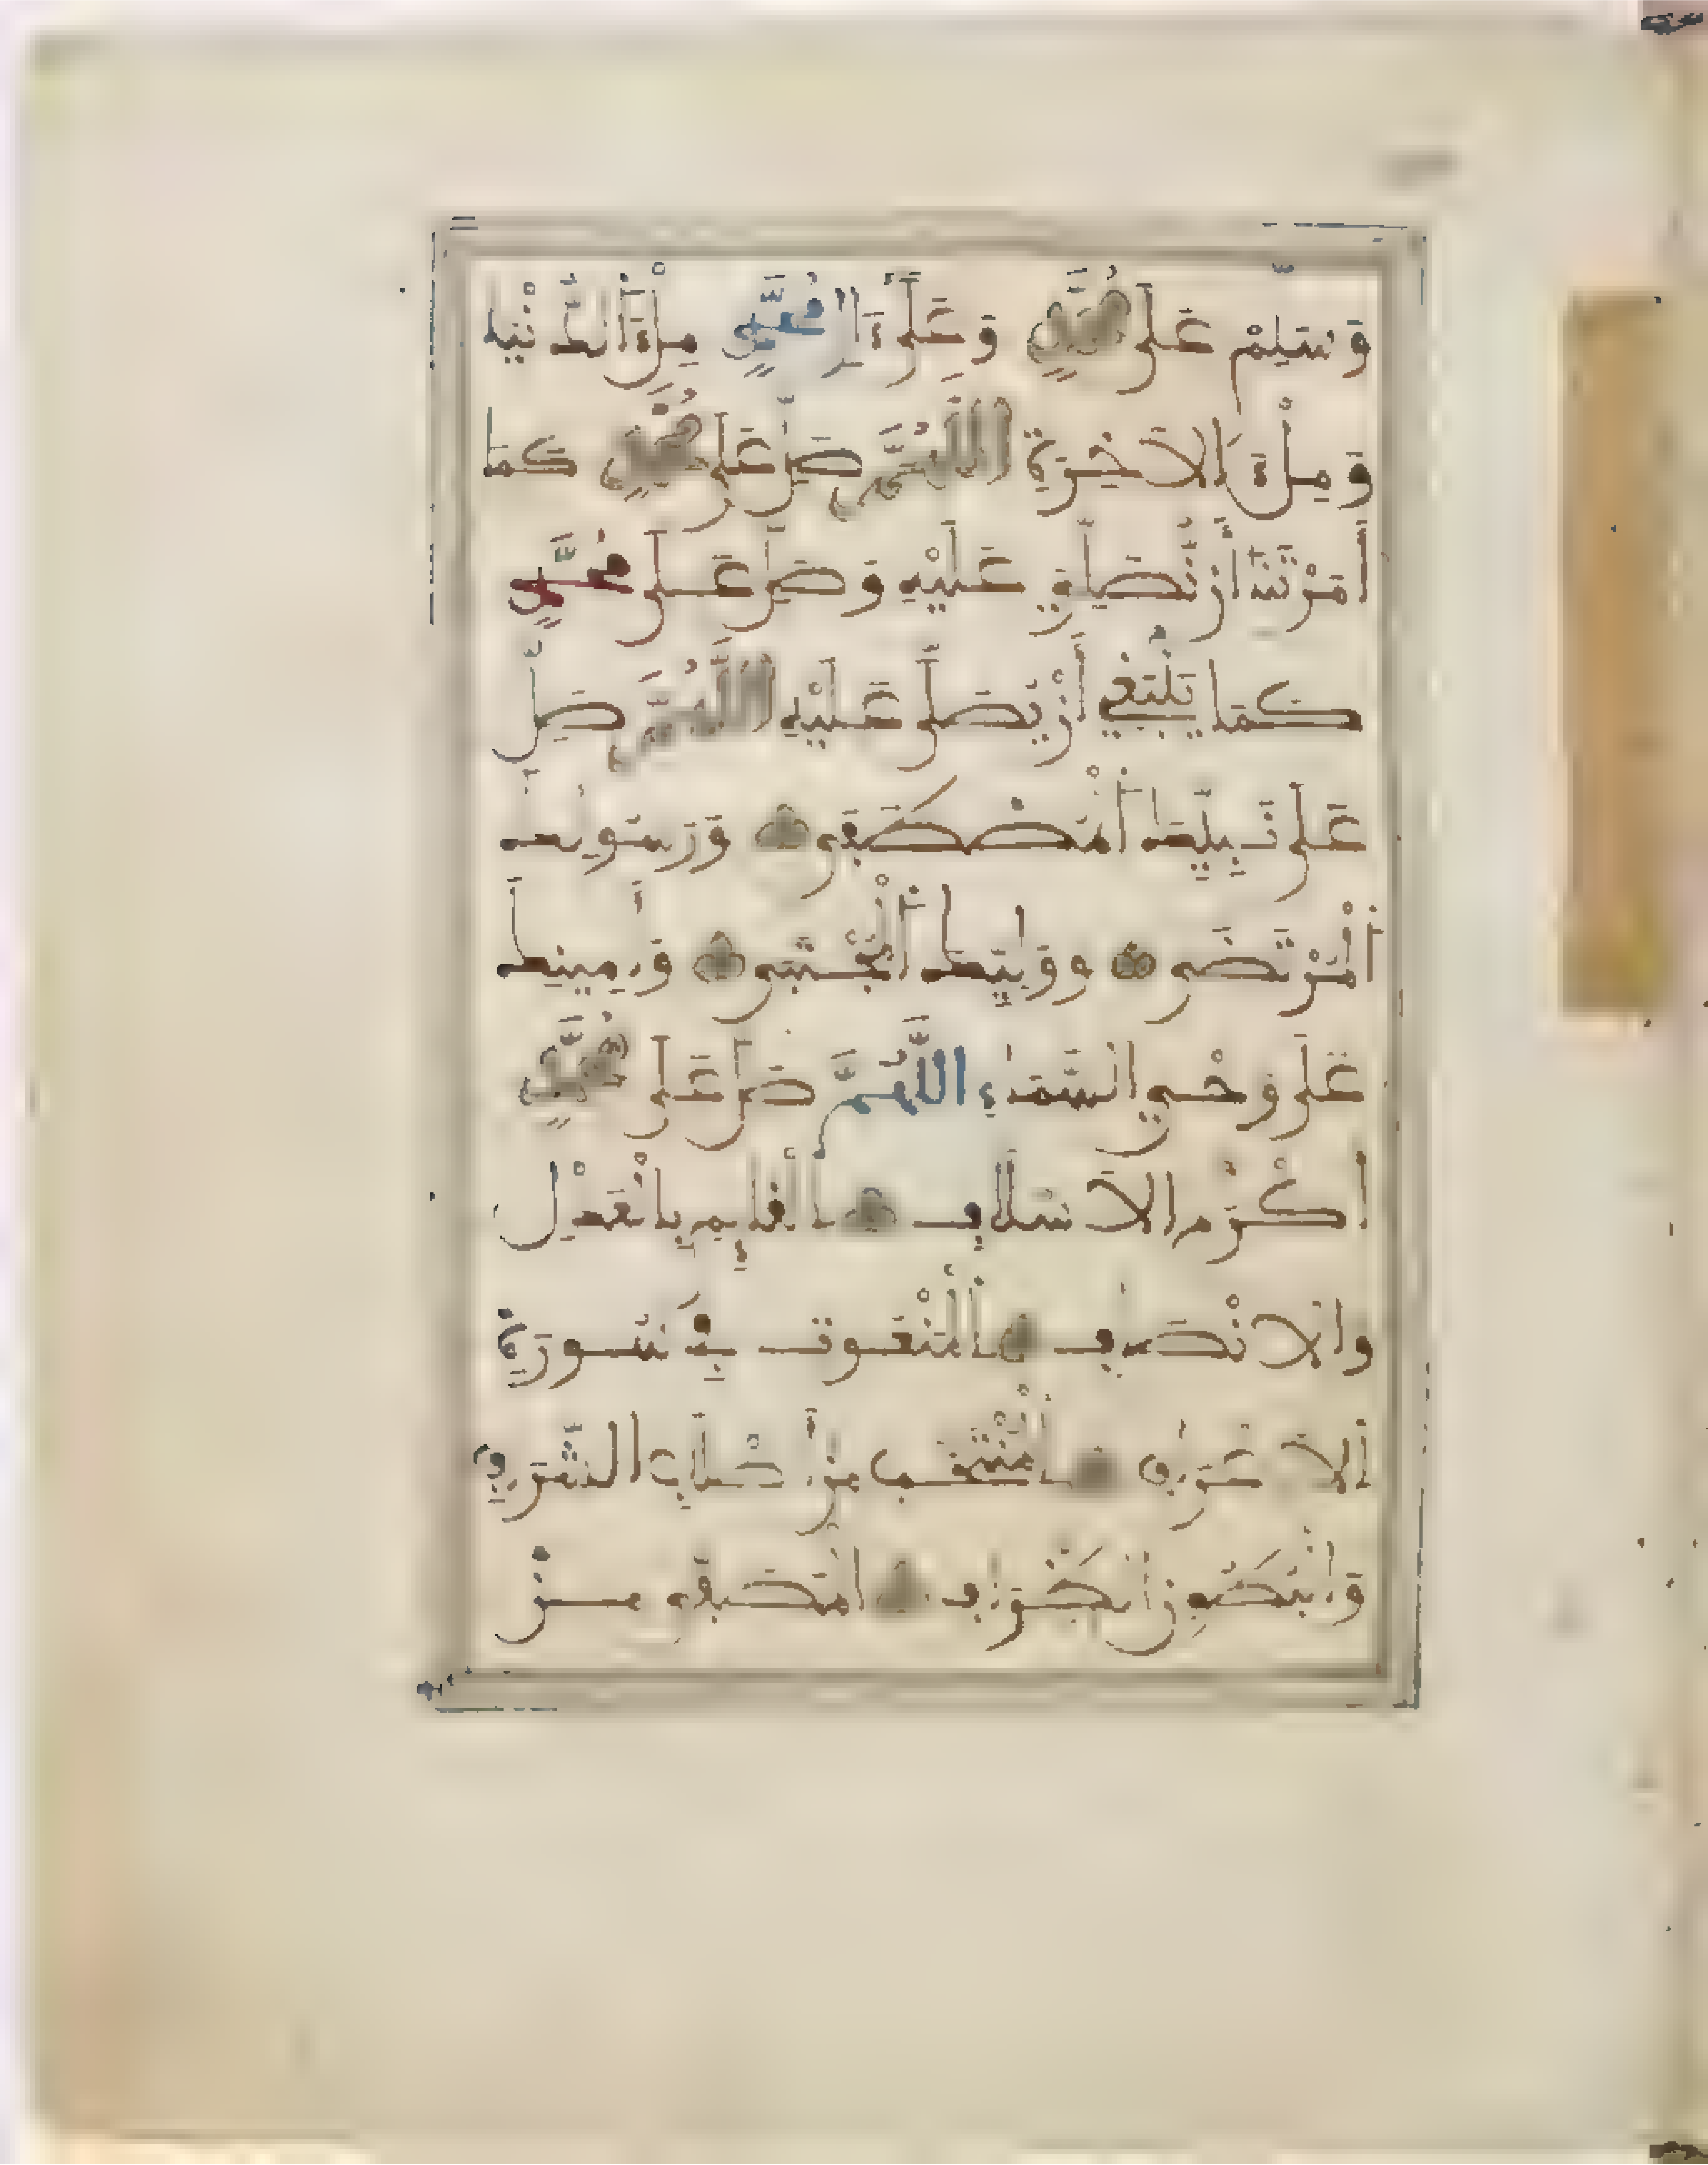 وَسَلِّمْ عَلَى مُحَمَّدٍ وَعَلَى ءَالِ مُحَمَّدٍ مِلْءَ الدُّنْيَا
وَمِلْءَ الاَخِرَةِ اللَّهُمَّ صَلِّ عَلَى مُحَمَّدٍ كَمَا
أَمَرْتَنَا أَن نُّصَلِّيَ عَلَيْهِ وَصَلِّ عَلَى مُحَمَّدٍ
كَمَا يَنْبَغِي أَنْ يُصَلَّى عَلَيْهِ اللَّهُمَّ صَلِّ
عَلَى نَبِيِّكَ الْمُصْطَفَى وَرَسُولِكَ
الْمُرْتَضَى وَوَلِيِّكَ الْمُجْتَبَى وَأَمِينِكَ
عَلَى وَحْيِ السَّمَاءِ اللَّهُمَّ صَلِّ عَلَى مُحَمَّدٍ
أَكْرَمِ الاَسْلاَفِ الْقَائِمِ بِالْعَدْلِ
وَالاِنْصَافِ الْمَنْعُوتِ فِي سُورَةِ
الاَعْرَافِ الْمُنْتَخَبِ مِنْ أَصْلاَبِ الشِّرَافِ
وَالْبُطُونِ الظِّرَافِ الْمُصَفَّى مِنْ